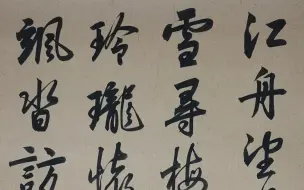 江舟望
雪尋梅
玲瓏懷
颯沓訪